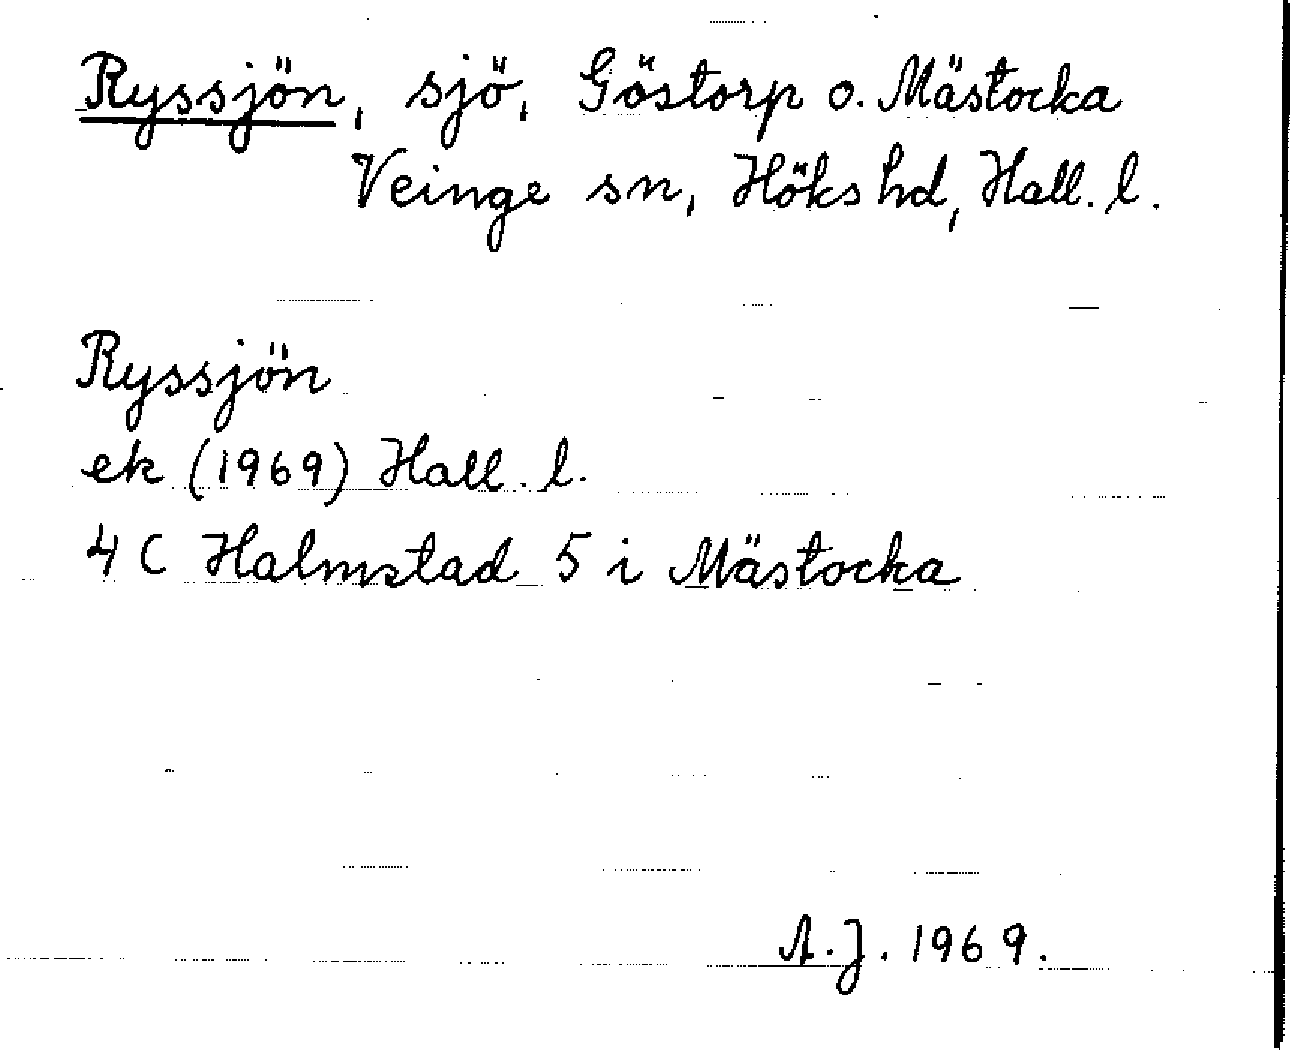 Ryssjön, sjö, Göstorp o. Mästocka
Veinge sn, Höks hd, Hall. l.
Ryssjön
ek (1969) Hall. l.
4 C Halmstad 5 i Mästocka
A.J. 1969.